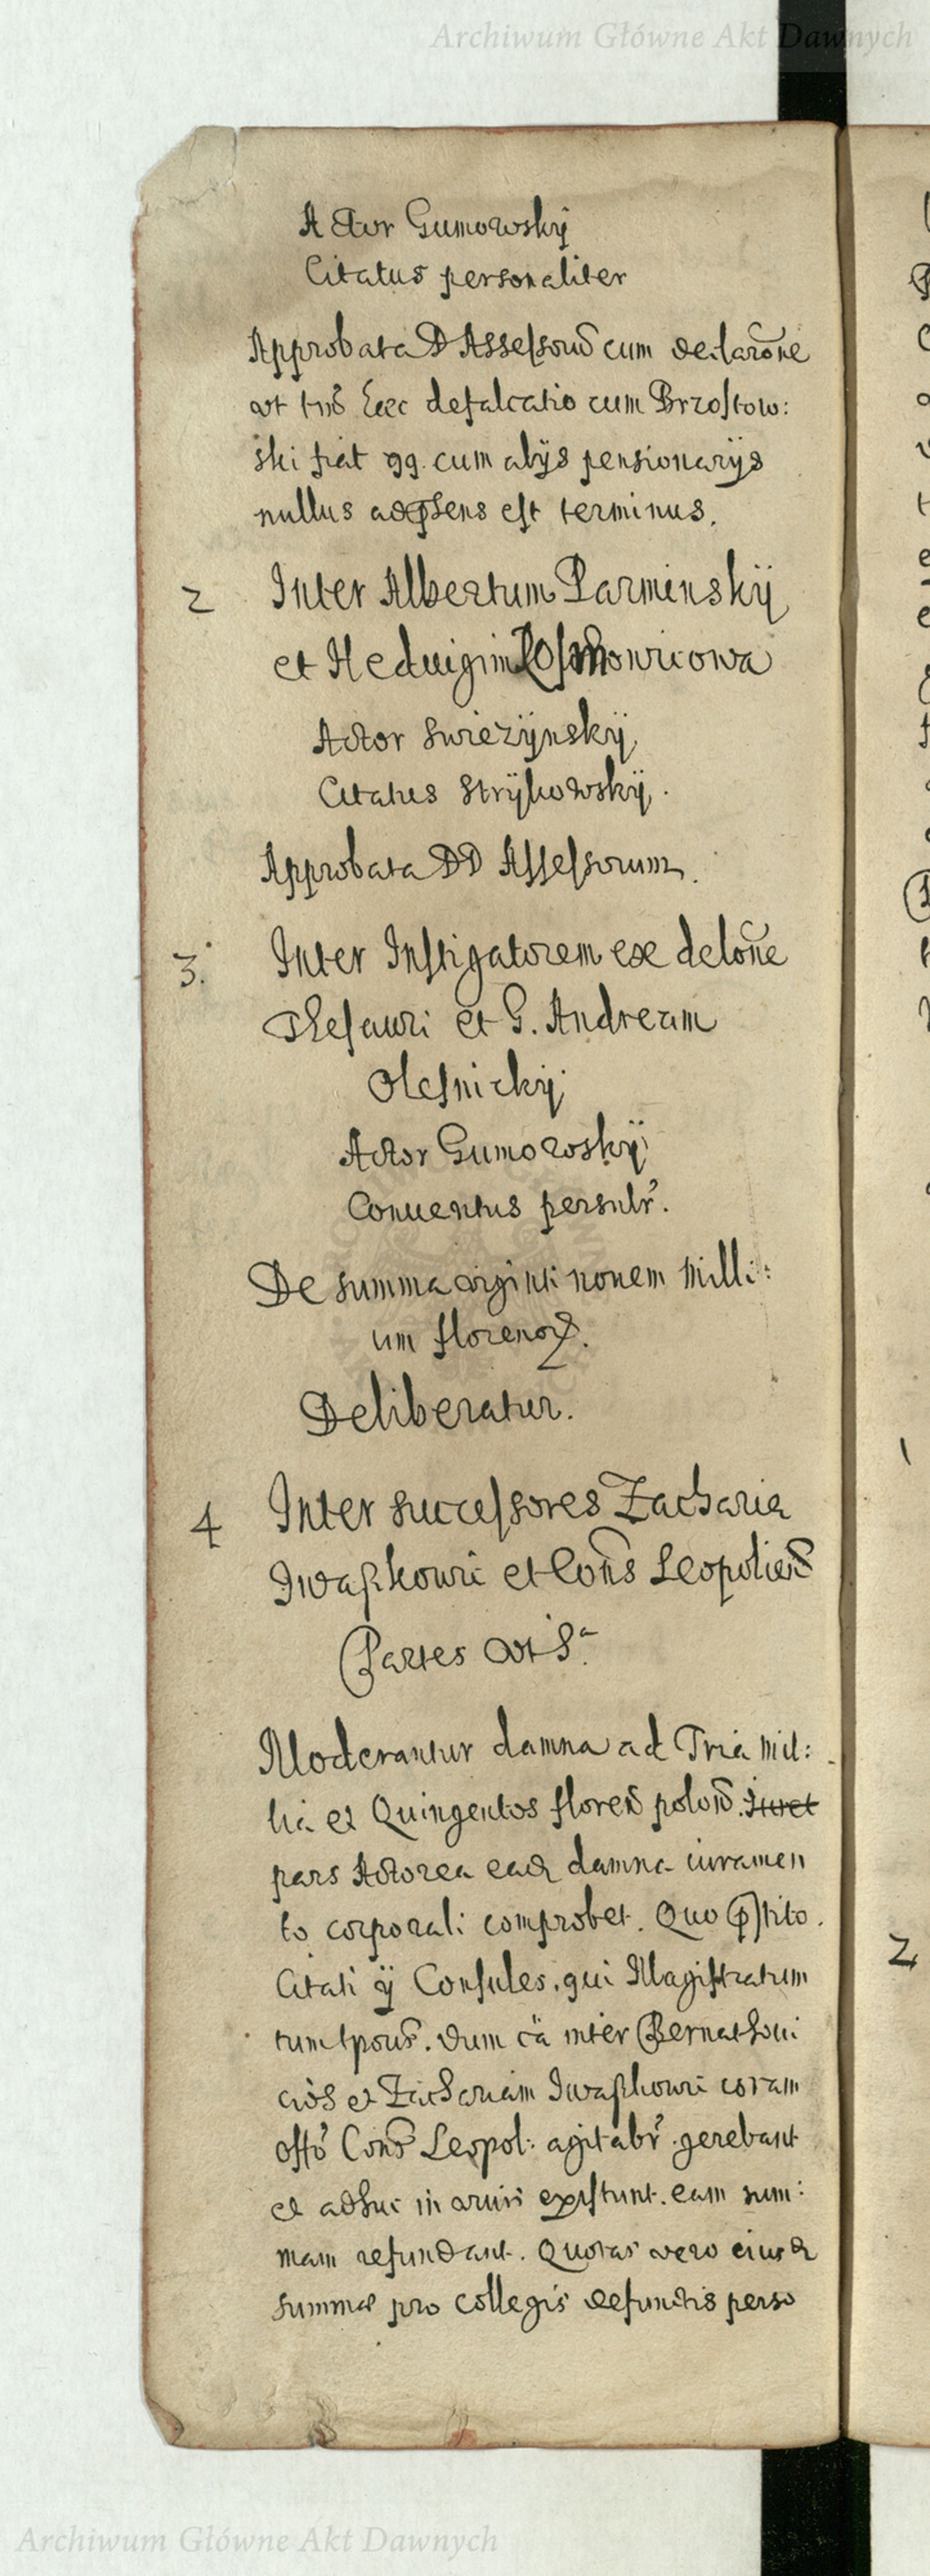 Archiwum Główne Akt Dawnych
Actor Gumowskÿ
Citatus personaliter
Approbata D Assessorũ cum declarõne
vt haec defalcatio cum Brzostow:
ski fiat qq. cum alÿs pensionarÿs
nullus adpſens est terminus.
2 Inter Albertum Parminskÿ
et Heduigim
Actor Swiezÿnskÿ
Citatus Strÿkowskÿ.
Approbata DD Assessorum.
3. Inter Instigatorem ex delõne
Thesauri et G. Andream
Olesnickÿ
Actor Gumowskÿ
Conuentus persnlr.
De summa viginti nouem milli:
um florenorꝝ.
Deliberatur.
4 Inter successores Zacharia
Iwaszkowic et Cons Leopolien
Partes vt Sa.
Moderantur damna ad Tria mil:
lia et Quingentos floren polon. Iuret
pars Actorea ead damna iuramen
to corporali comprobet. Quo pstito.
Citati ÿ Consules, qui Magistratum
tum tpours. dum cä inter Bernathoui
cios et Zachariam Iwaszkowic coram
offo Cons Leopol: agitabr gerebant
et adhuc in viuis existunt. eam sum:
mam refundant. Quotas vero eiusd
summae pro collegis defunctis perso
2
Archiwum Główne Akt Dawnych